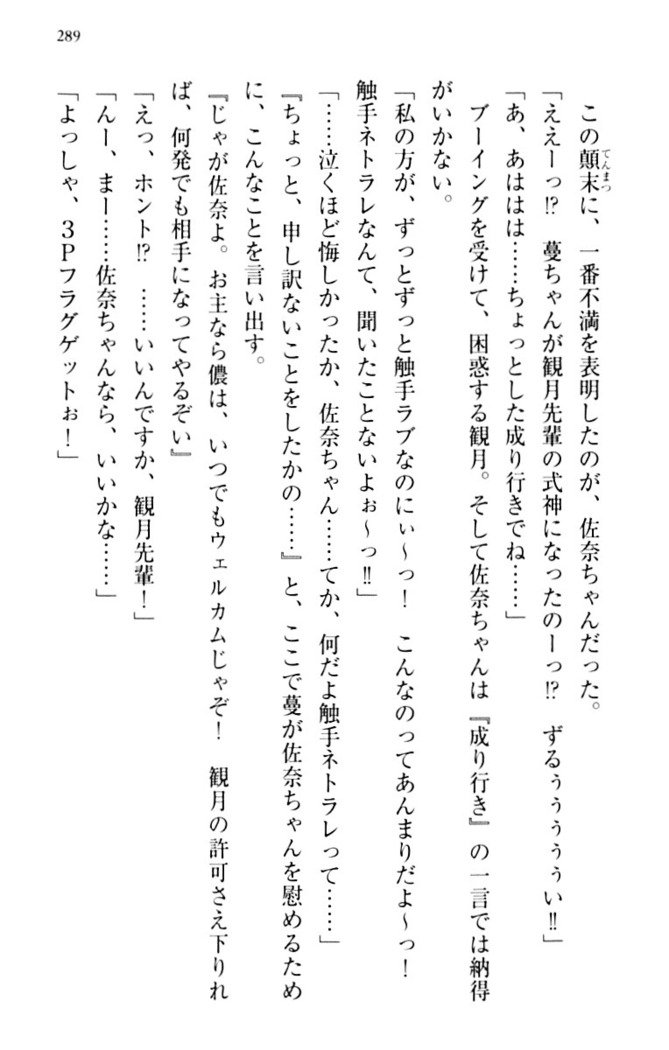 289
この顛末に、一番不満を表明したのが、佐奈ちゃんだった。
てんまつ
「ええーっ!?　蔓ちゃんが観月先輩の式神になったのーっ!?　ずるぅぅぅぅぅい!!」
「あ、あははは……ちょっとした成り行きでね……」
ブーイングを受けて、困惑する観月。そして佐奈ちゃんは『成り行き』の一言では納得
がいかない。
「私の方が、ずっとずっと触手ラブなのにぃ〜っ！　こんなのってあんまりだよ〜っ！
触手ネトラレなんて、聞いたことないよぉ〜っ!!」
「……泣くほど悔しかったか、佐奈ちゃん……てか、何だよ触手ネトラレって……」
『ちょっと、申し訳ないことをしたかの……』と、ここで蔓が佐奈ちゃんを慰めるため
に、こんなことを言い出す。
『じゃが佐奈よ。お主なら儂は、いつでもウェルカムじゃぞ！　観月の許可さえ下りれ
ば、何発でも相手になってやるぞい』
「えっ、ホント!?　……いいんですか、観月先輩！」
「んー、まー……佐奈ちゃんなら、いいかな……」
「よっしゃ、３Ｐフラグゲットぉ！」